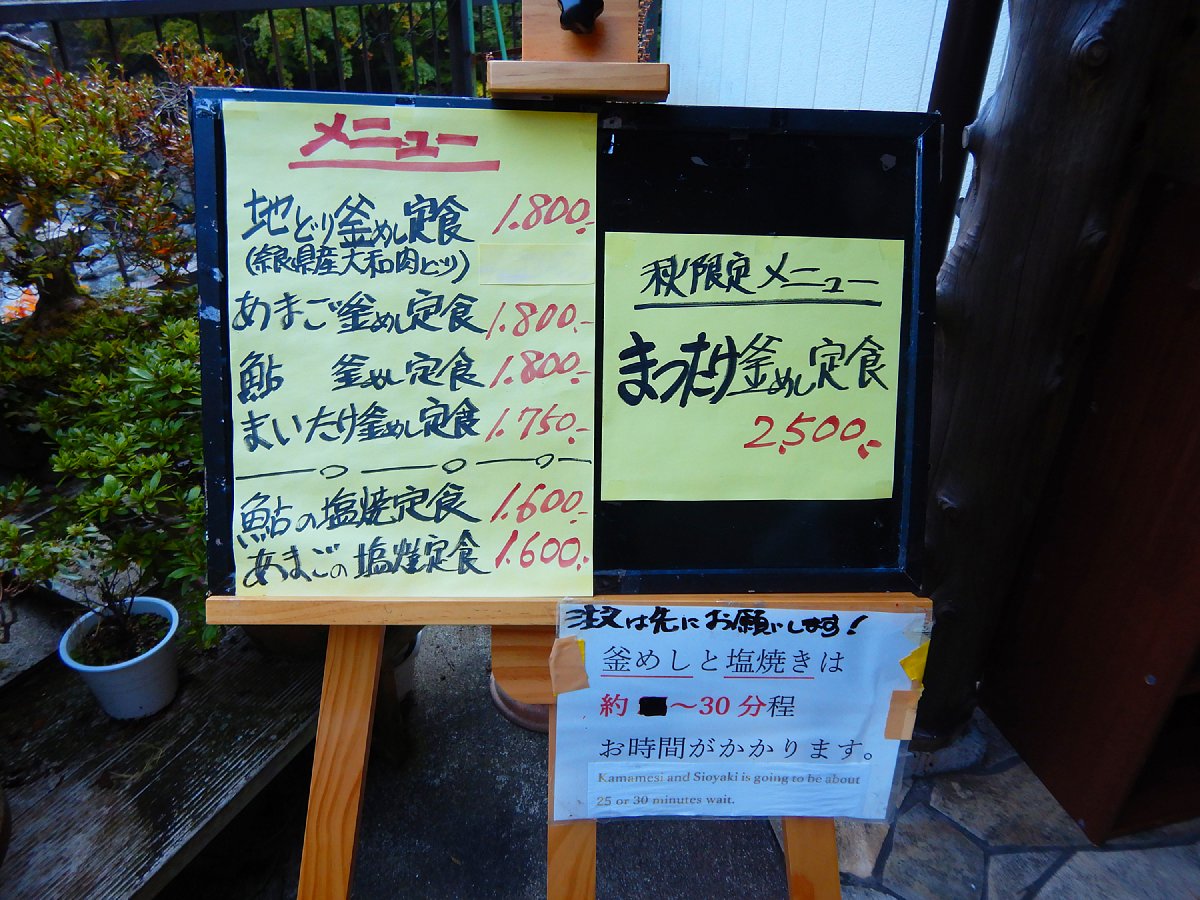 メニュー
地どり釜めし定食 1.800.-
(奈良県産大和肉どり)
あまご釜めし定食 1.800.-
鮎 釜めし定食 1.800.-
まいたけ釜めし定食 1.750.-
鮎の塩焼定食 1.600.-
あまごの塩焼定食 1.600.-
秋限定メニュー
まったけ釜めし定食
2,500.-
注文は先にお願いします!
釜めしと塩焼きは
約 ~30分程
お時間がかかります。
Kamamesi and Sioyaki is going to be about
25 or 30 minutes wait.